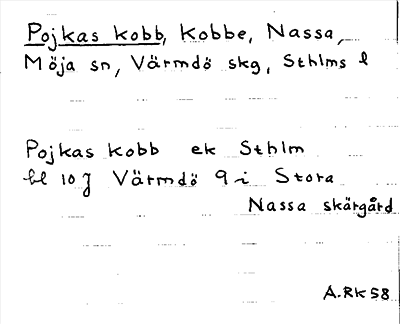 Pojkas kobb, Kobbe, Nassa,
Möja sn, Värmdö skg, Sthlms l
Pojkas kobb ek Sthlm
bl 10 J Värmdö 9 i Stora
Nassa skärgård
A.RK 58